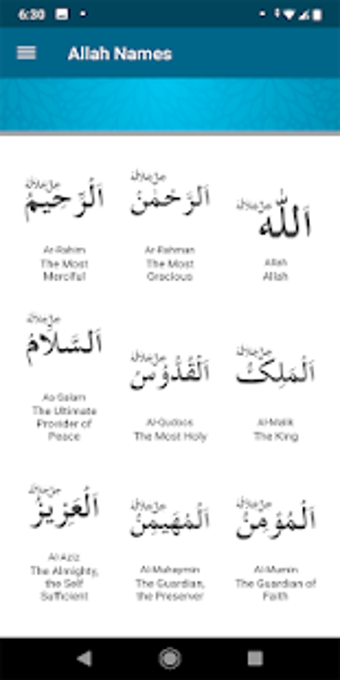 6:30
Allah Names
جل جلاله
اَللّٰه
Allah
Allah
جل جلاله
اَلرَّحْمٰنُ
Ar-Rahman
The Most
Gracious
جل جلاله
اَلرَّحِيمُ
Ar-Rahim
The Most
Merciful
جل جلاله
اَلْمَلِكُ
Al-Malik
The King
جل جلاله
اَلْقُدُّوْسُ
Al-Qudoos
The Most Holy
جل جلاله
اَلسَّلَامُ
As-Salam
The Ultimate
Provider of
Peace
جل جلاله
اَلْمُؤْمِنُ
Al-Mumin
The Guardian of
Faith
جل جلاله
اَلْمُهَيمِنُ
Al-Muhaymin
The Guardian,
the Preserver
جل جلاله
اَلْعَزِيْزُ
Al Aziz
The Almighty,
the Self
Sufficient